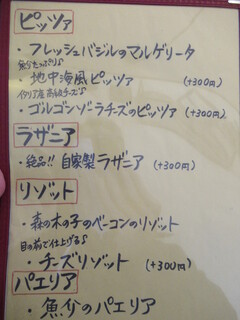 ピッツァ
・フレッシュバジルのマルゲリータ
魚介たっぷり♪
・地中海風ピッツァ (+300円)
イタリア産高級チーズ♪
・ゴルゴンゾーラチーズのピッツァ (+300円)
ラザニア
・絶品!! 自家製ラザニア (+300円)
リゾット
・森の木の子のベーコンのリゾット
目の前で仕上げる♪
・チーズリゾット (+300円)
パエリア
・魚介のパエリア